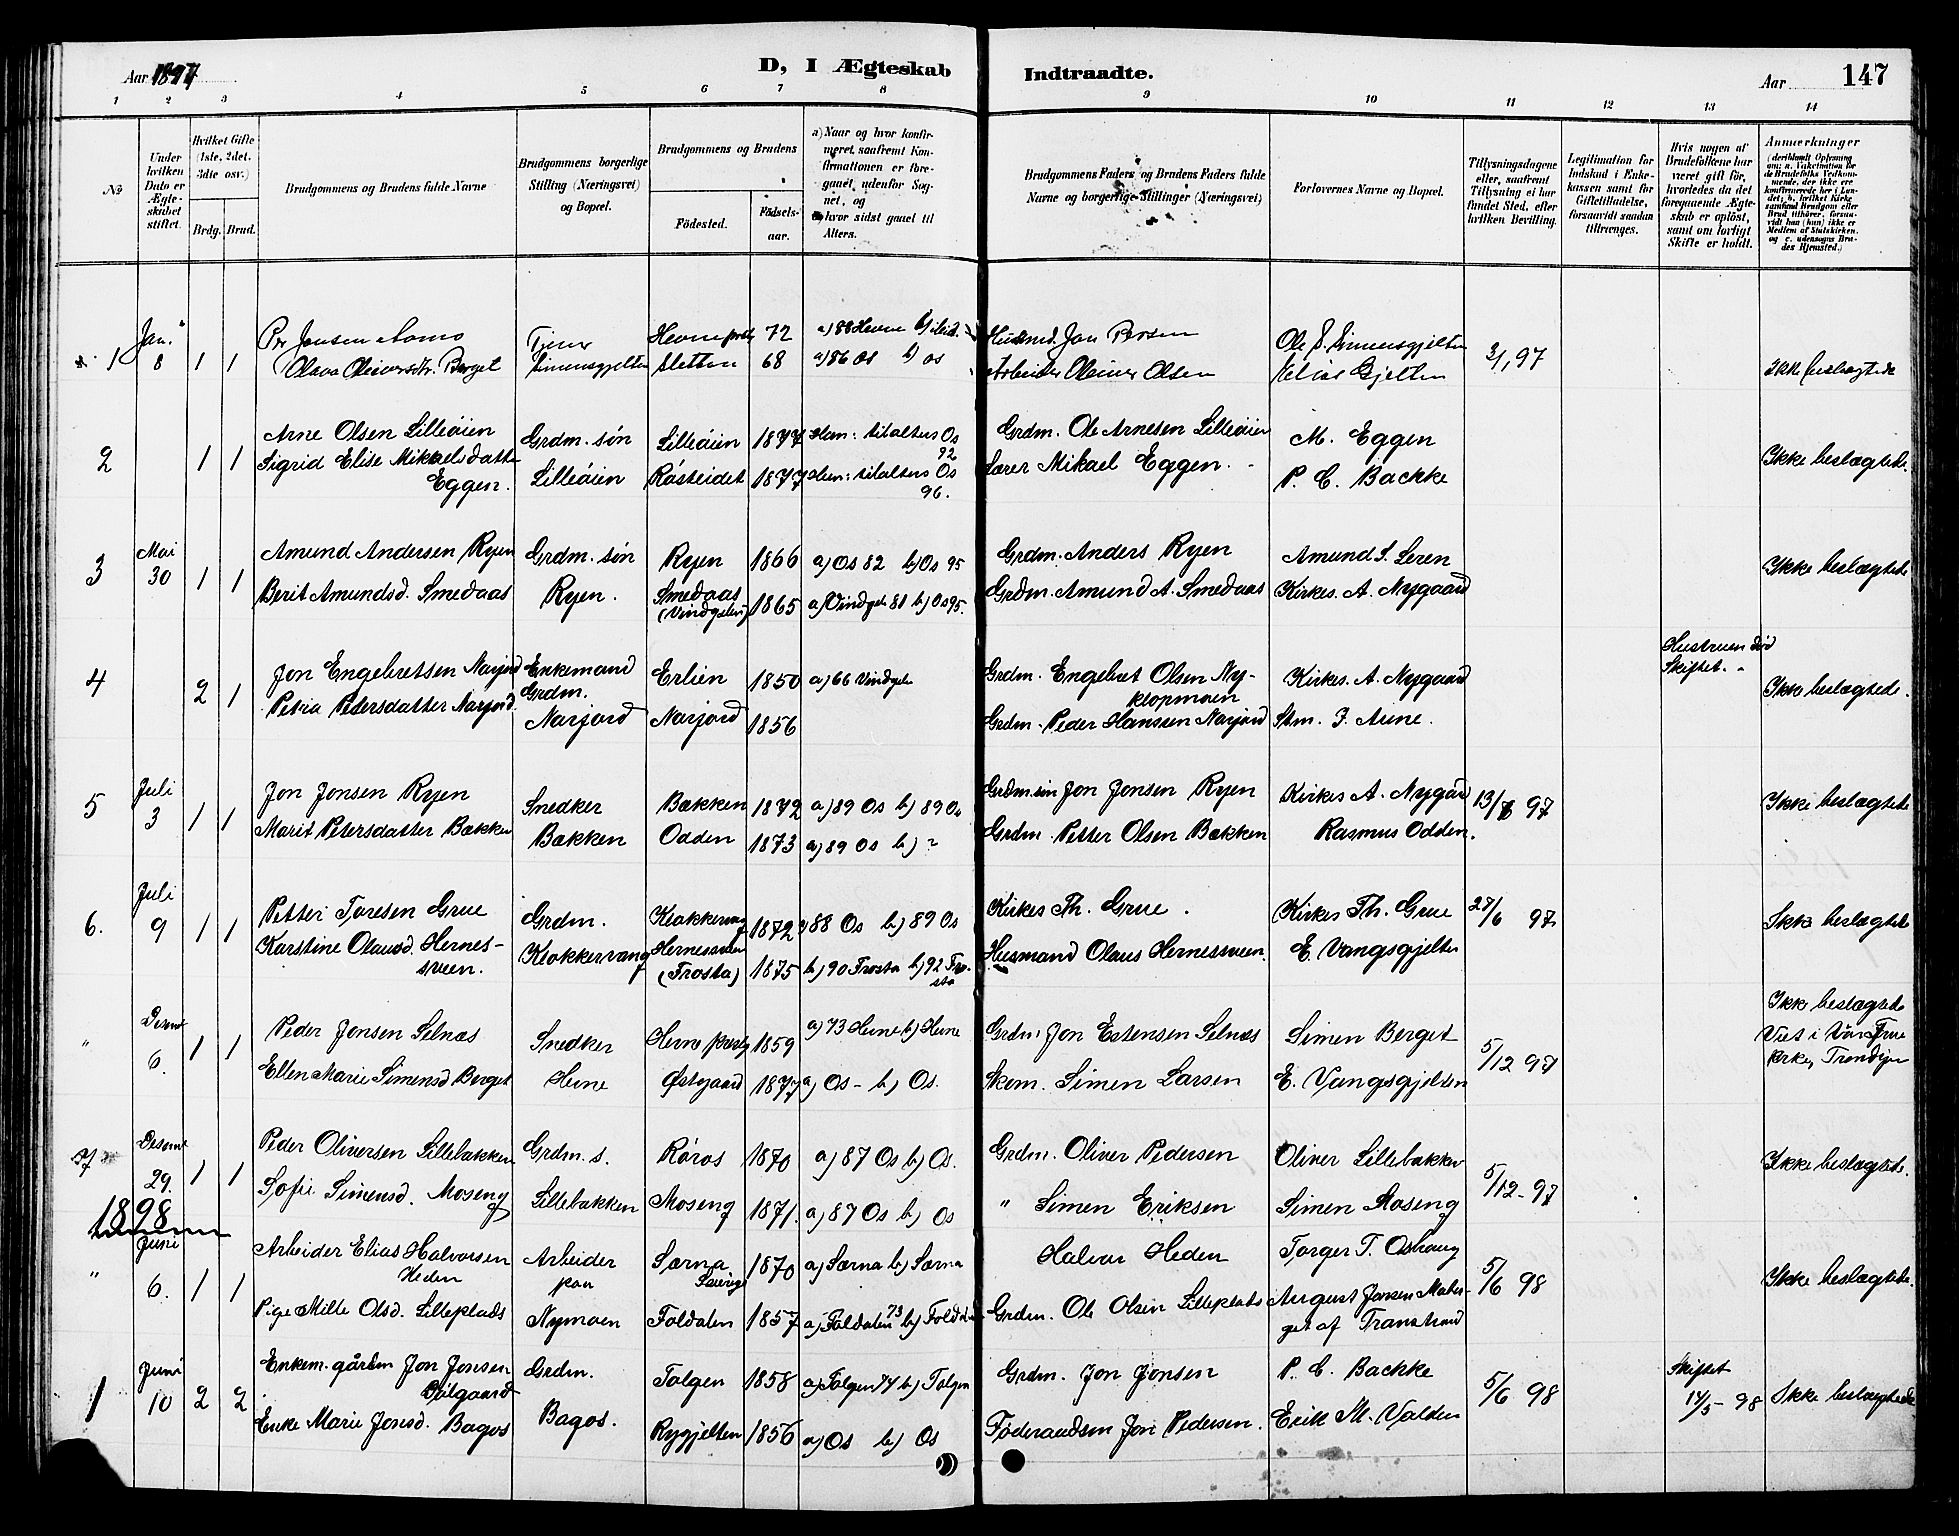 Aar 1897
D, I Ægteskab
Indtraadte.
Aar
147
1 2 3 4 5 6 7 8 9 10 11 12 13 14
No
Under hvilken Dato er Ægteskabet stiftet.
Hvilket Gifte (1ste, 2det, 3die osv.)
Brdg. Brud.
Brudgommens og Brudens fulde Navne
Brudgommens borgerlige Stilling (Næringsvei) og Bopæl.
Brudgommens og Brudens
Fødested.
Fødsels-aar.
a) Naar og hvor konfirmeret, saafremt Konfirmationen er foregaaet udenfor Sognet, og
b) hvor sidst gaaet til Alters.
Brudgommens Faders og Brudens Faders fulde Navne og borgerlige Stillinger (Næringsvei)
Forlovernes Navne og Bopæl.
Tillysningsdagene eller, saafremt Tillysning ei har fundet Sted, efter hvilken Bevilling.
Legitimation for Indskud i Enkekassen samt for Giftetilladelse, forsaavidt saadan tiltrænges.
Hvis nogen af Brudefolkene har været gift før, hvorledes da det foregaaende Ægteskab er opløst, samt om lovligt Skifte er holdt.
Anmærkninger
1 Jan. 8 1 1 Per Jonsen Aomo Tjener Hevne prstg 72 a) 88 Hevne b) ibid. Husmd. Jon Persen Ole S. Simensgjelten 3/1 97 Ikke beslægtede
Olava Oleiversdtr. Berget Simensgjelten Sletten 68 a) 86 Os b) Os Arbeider Oleiver Olsen Gjelten
2 1 1 Arne Olsen Lilleøien Grdm. søn Lilleøien 1877 Ham: til alters Os 92 Grdm. Ole Arnesen Lilleøien M. Eggen Ikke beslægtede.
Sigrid Elise Mikaelsdatter Eggen. Lilleøien Røsteidet 1877 Hun: til alters Os 96. Lærer Mikael Eggen. P. C. Backke
3 Mai 30 1 1 Amund Andersen Ryen Grdm. søn Ryen 1866 a) Os 82 b) Os 95 Grdm. Anders Ryen Amund S. Leren Ikke beslægtede
Berit Amundsd. Smedaas Ryen. Smedaas (Vindgelen) 1865 a) Vindgeln 81 b) Os 95. Grdm. Amund A. Smedaas Kirkes. A. Nygaard
4 2 1 Jon Engebretsen Narjord Enkemand Grdm. Erlien 1850 a) 66 Vindgeln Grdm. Engebret Olsen Ny-klopmoen Kirkes. A. Nygaard Hustruen død Skiftet. Ikke beslægtede.
Petra Petersdatter Narjord. Narjord Narjord 1856 Grdm. Peder Hanssen Narjord Stm. J. Aune.
5 Juli 3 1 1 Jon Jonsen Ryen Snedker Bækken 1872 a) 89 Os b) 89 Os Grdm.søn Jon Jonsen Ryen Kirkes A. Nygård 13/6 97 Ikke beslægtede
Marit Petersdatter Bækken Bækken Odden 1873 a) 89 Os b) ? Grdm. Petter Olsen Bækken Rasmus Odden.
6. Juli 9 1 1 Petter Toresen Grue Grdm. Klokkervang 1872 88 Os b) 89 Os Kirkes Th. Grue. Kirkes Th. Grue 27/6 97 Ikke beslægtede
Karstine Olausd. Hernes-sveen. Klokkervang Hernessveen (Frosta) 1875 b) 90 Frosta b) 92 Fro-sta Husmand Olaus Hernessveen. E. Vangsgjelten
" Desemr 6. 1 1 Peder Jonsen Selnæs Snedker Hevne prestg 1859 a) 73 Hevne b) Hevne Grdm. Jon Estensen Selnæs Simen Berget 5/12 97 Ikke beslægtede Viet i Vår Frue kirke, Trondhjem
Ellen Marie Simensd Berget Hevne Østgaard 1877 a) Os - b) Os. Skom. Simen Larsen E. Vangsgjelten
7 Desemr 29. 1 1 Peder Oliversen Lillebækken Grdm. s. Røros 1870 a) 87 Os b) Os. Grdm. Oliver Pedersen Oliver Lillebækken 5/12-97 Ikke beslægtede.
Sofie Simensd. Moseng Lillebækken Moseng 1871. a) 87 Os b) Os " Simen Eriksen Simen Moseng
1898
" Juni 6. 1 1 Arbeider Elias Halvorsen Heden Arbeider paa Særna Sverige 1870 a) Særna b) Særna Halvor Heden Torger T. Oshaug 5/6 98 Ikke beslægtede.
Pige Milte Olsd. Lilleplads Nymoen Foldalen 1857 a) Foldalen 73 b) Foldalen Grdm. Ole Olsen Lilleplads August Jonsen get af Transtrand
1 Juni 10 2 2 Enkem. gårdm Jon Jonsen Dalgaard Grdm. Tolgen 1858 a) Tolgen 74 b) Tolgen Grdm. Jon Jonsen P. C. Backke 5/6 98 Skiftet 14/5-98 Ikke beslægtede
Enke Marie Jonsd. Bagos Bagos. Rygjelten 1856 a) Os b) Os Føderaadsm Jon Pedersen. Erik M. Volden